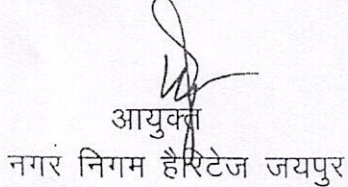 आयुक्त
नगर निगम हैरिटेज जयपुर